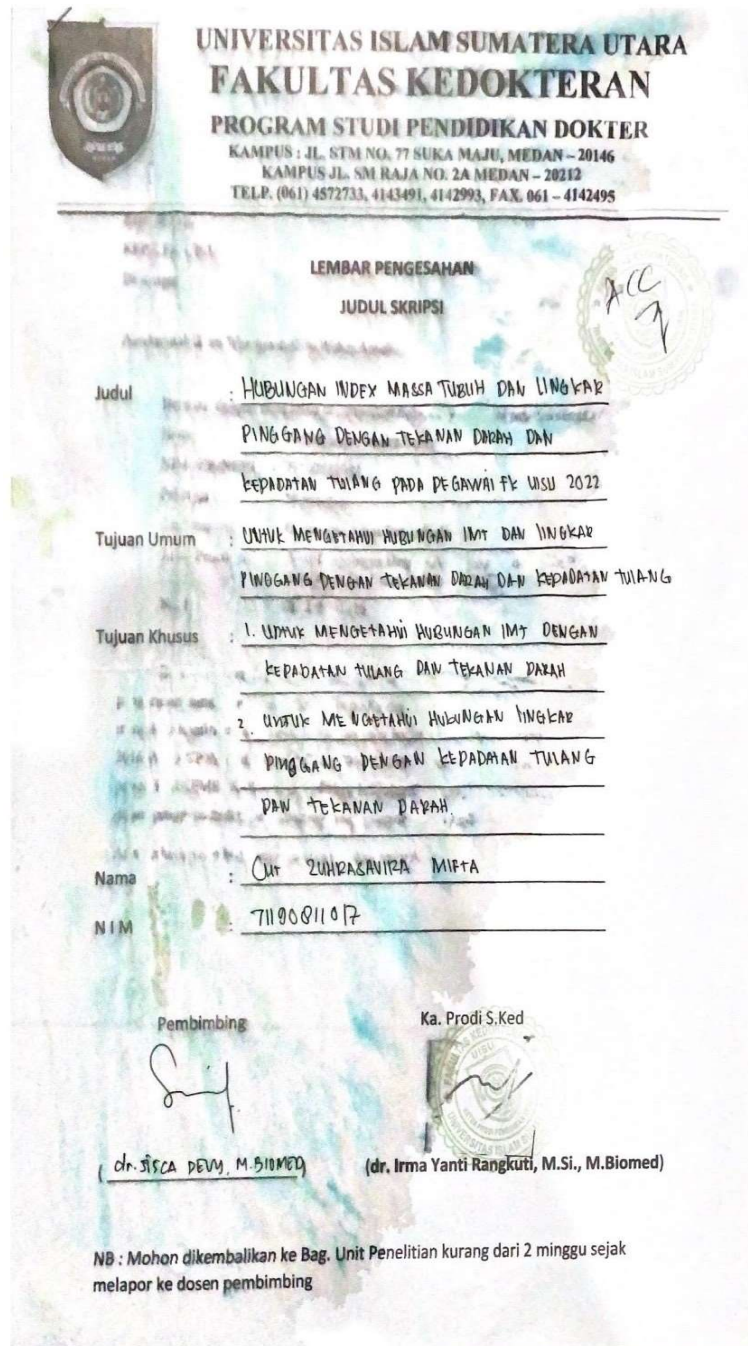 UNIVERSITAS ISLAM SUMATERA UTARA
FAKULTAS KEDOKTERAN
PROGRAM STUDI PENDIDIKAN DOKTER
KAMPUS : JL. STM NO. 77 SUKA MAJU, MEDAN – 20146
KAMPUS JL. SM RAJA NO. 2A MEDAN – 20212
TELP. (061) 4572733, 4143491, 4142993, FAX. 061 – 4142495
LEMBAR PENGESAHAN
JUDUL SKRIPSI
ACC
Judul : HUBUNGAN INDEX MASSA TUBUH DAN LINGKAR
PINGGANG DENGAN TEKANAN DARAH DAN
KEPADATAN TULANG PADA PEGAWAI FK UISU 2022
Tujuan Umum : UNTUK MENGETAHUI HUBUNGAN IMT DAN LINGKAR
PINGGANG DENGAN TEKANAN DARAH DAN KEPADATAN TULANG
Tujuan Khusus : 1. UNTUK MENGETAHUI HUBUNGAN IMT DENGAN
KEPADATAN TULANG DAN TEKANAN DARAH
2. UNTUK MENGETAHUI HUBUNGAN LINGKAR
PINGGANG DENGAN KEPADATAN TULANG
DAN TEKANAN DARAH.
Nama : CUT ZUHRASAVIRA MIFTA
NIM : 71190811017
Pembimbing
Ka. Prodi S.Ked
(dr. SISCA DEVY, M.BIOMED)
(dr. Irma Yanti Rangkuti, M.Si., M.Biomed)
NB : Mohon dikembalikan ke Bag. Unit Penelitian kurang dari 2 minggu sejak
melapor ke dosen pembimbing